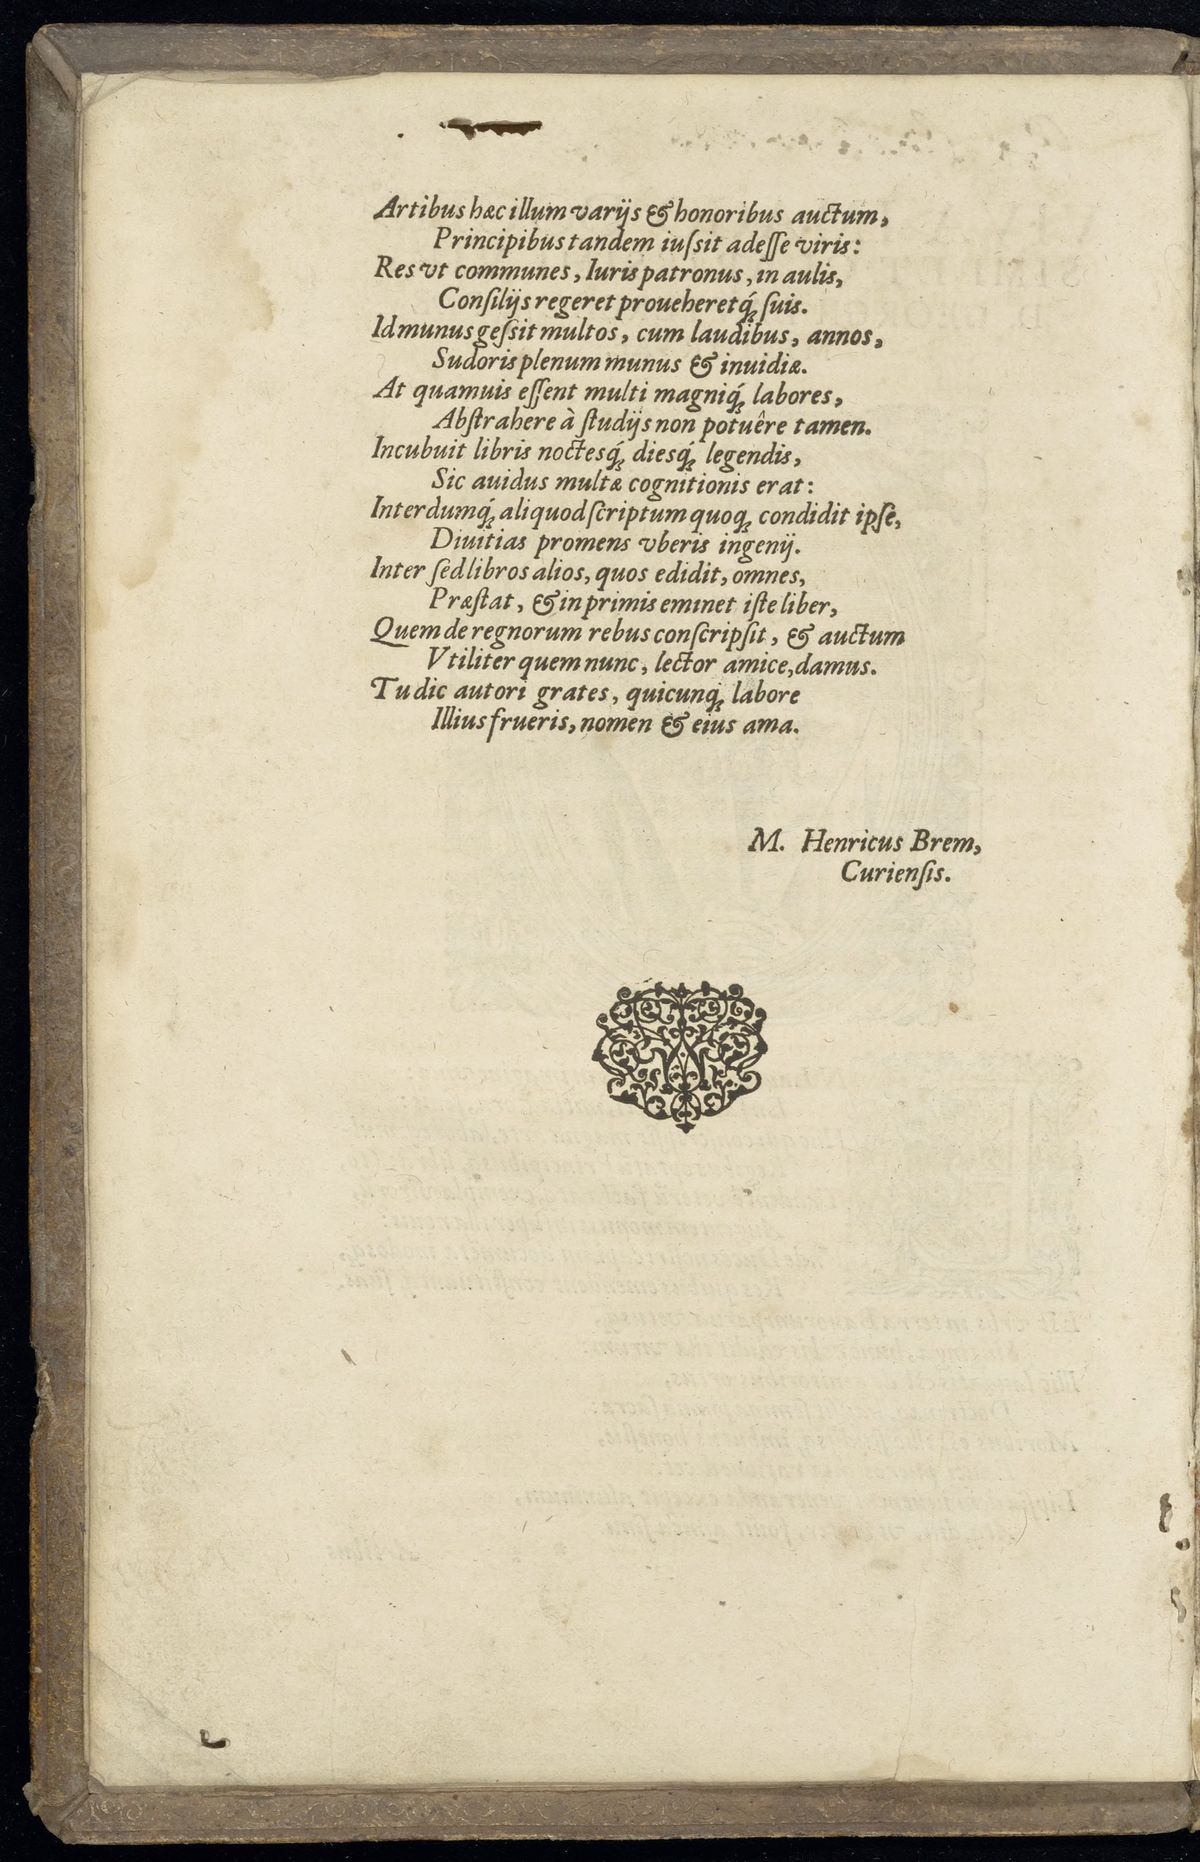 Artibus hæc illum varijs & honoribus auctum,
Principibus tandem iuſsit adeſſe viris:
Res vt communes, Iuris patronus, in aulis,
Conſilijs regeret proueheretq́ꝫ ſuis.
Id munus geſsit multos, cum laudibus, annos,
Sudoris plenum munus & inuidiæ.
At quamuis eſſent multi magniq́ꝫ labores,
Abſtrahere à ſtudijs non potuêre tamen.
Incubuit libris noctesq́ꝫ diesq́ꝫ legendis,
Sic auidus multæ cognitionis erat:
Interdumq́ꝫ aliquod ſcriptum quoqꝫ condidit ipſe,
Diuitias promens vberis ingenij.
Inter ſed libros alios, quos edidit, omnes,
Præſtat, & in primis eminet iſte liber,
Quem de regnorum rebus conſcripſit, & auctum
Vtiliter quem nunc, lector amice, damus.
Tu dic autori grates, quicunq́ꝫ labore
Illius frueris, nomen & eius ama.
M. Henricus Brem,
Curienſis.